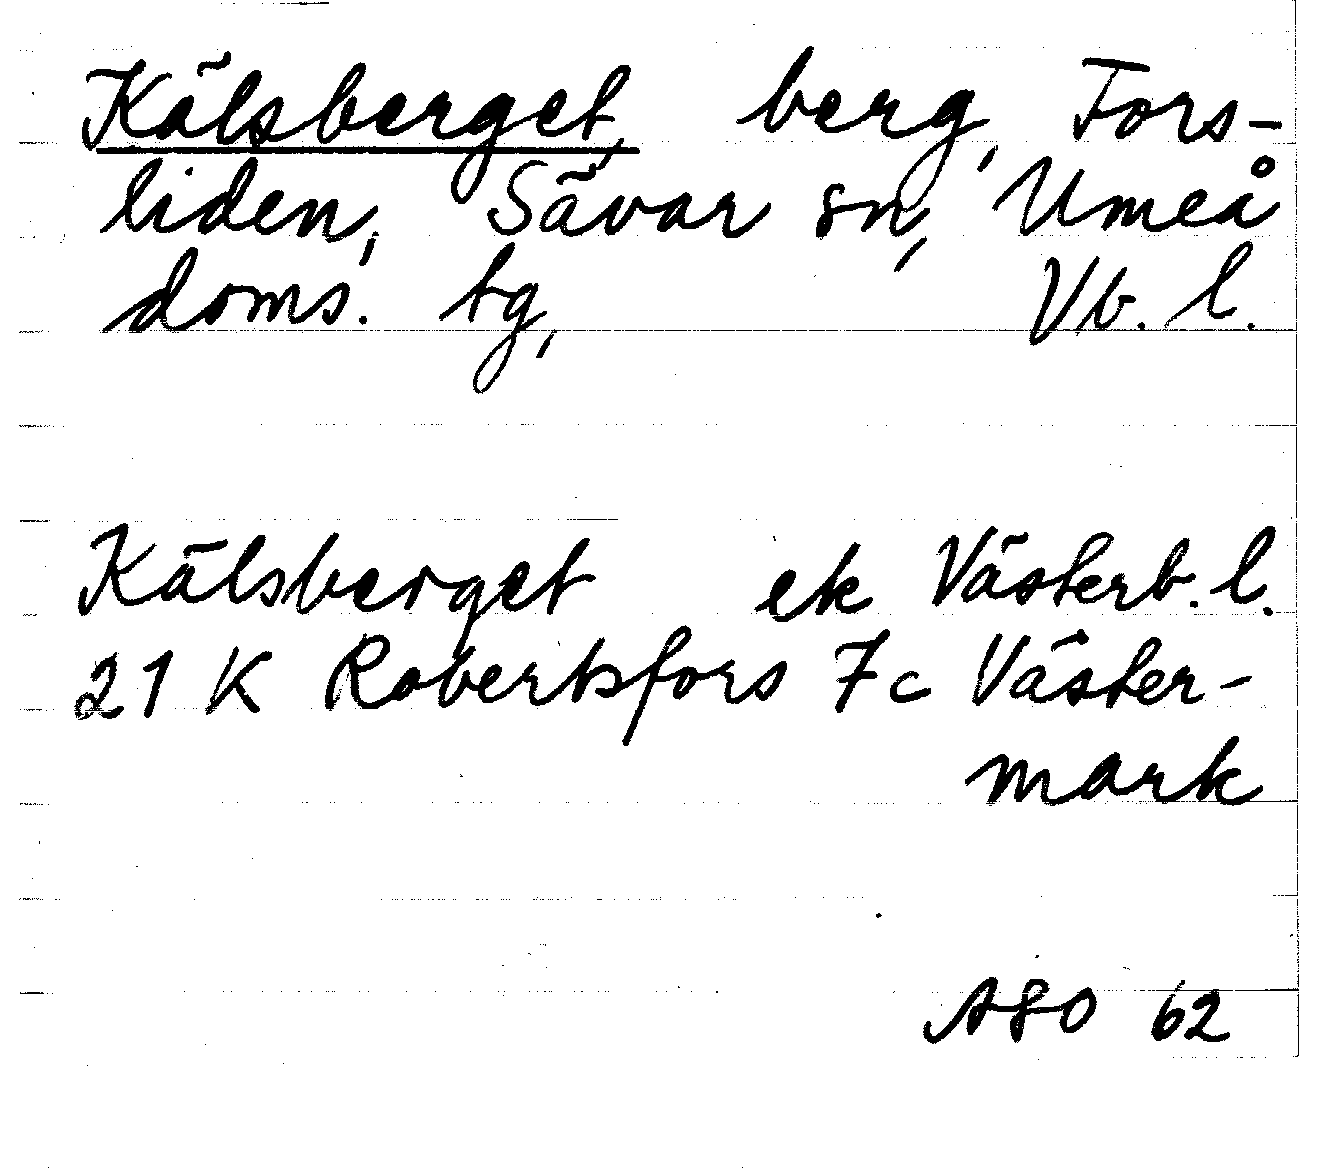 Kälsberget, berg, Fors-
liden, Sävar sn, Umeå
doms. tg, Vb. l.
Kälsberget ek Västerb. l.
21 K Robertsfors 7c Väster-
mark
ASO 62